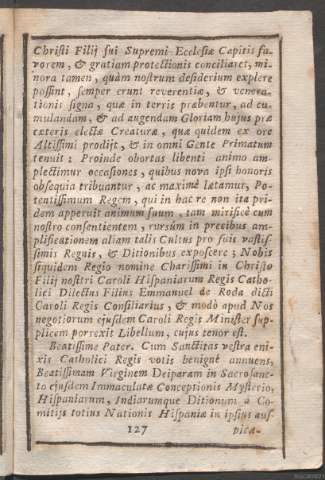 Christi Filij sui Supremi Ecclesiæ Capitis fa-
vorem, & gratiam protectionis conciliaret, mi-
nora tamen, quàm nostrum desiderium explere
possint, semper erunt reverentiæ, & venera-
tionis signa, quæ in terris præbentur, ad cu-
mulandam, & ad augendam Gloriam hujus præ
cæteris electæ Creaturæ, quæ quidem ex ore
Altissimi prodijt, & in omni Gente Primatum
tenuit: Proinde obortas libenti animo am-
plectimur occasiones, quibus nova ipsi honoris
obsequia tribuantur, ac maximè lætamur, Po-
tentissimum Regem, qui in hac re non ita pri-
dem apperuit animum suum, tam mirificè cum
nostro consentientem, rursùm in precibus am-
plificationem aliam talis Cultus pro suis vastis-
simis Regnis, & Ditionibus exposcere; Nobis
siquidem Regio nomine Charissimi in Christo
Filij nostri Caroli Hispaniarum Regis Catho-
lici Dilectus Filius Emmanuel de Roda dicti
Caroli Regis Consiliarius, & modò apud Nos
negotiorum ejusdem Caroli Regis Minister sup-
plicem porrexit Libellum, cujus tenor est.
Beatissime Pater. Cum Sanctitas vestra eni-
xis Catholici Regis votis benignè annuens,
Beatissimam Virginem Deiparam in Sacrosanc-
to ejusdem Immaculatæ Conceptionis Mysterio,
Hispaniarum, Indiarumque Ditionum à Co-
mitijs totius Nationis Hispaniæ in ipsius aus-
127 pica-